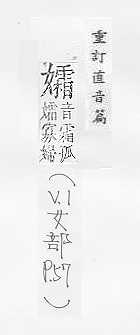 重訂直音篇
嬬
音霜孤
嬬寡婦
(V.1女部P.57)